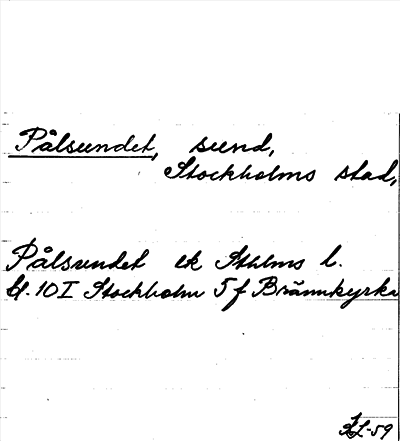 Pålsundet, sund,
Stockholms stad,
Pålsundet ek Sthlms l.
bl. 10I Stockholm 5f Brännkyrka
ÅL-59